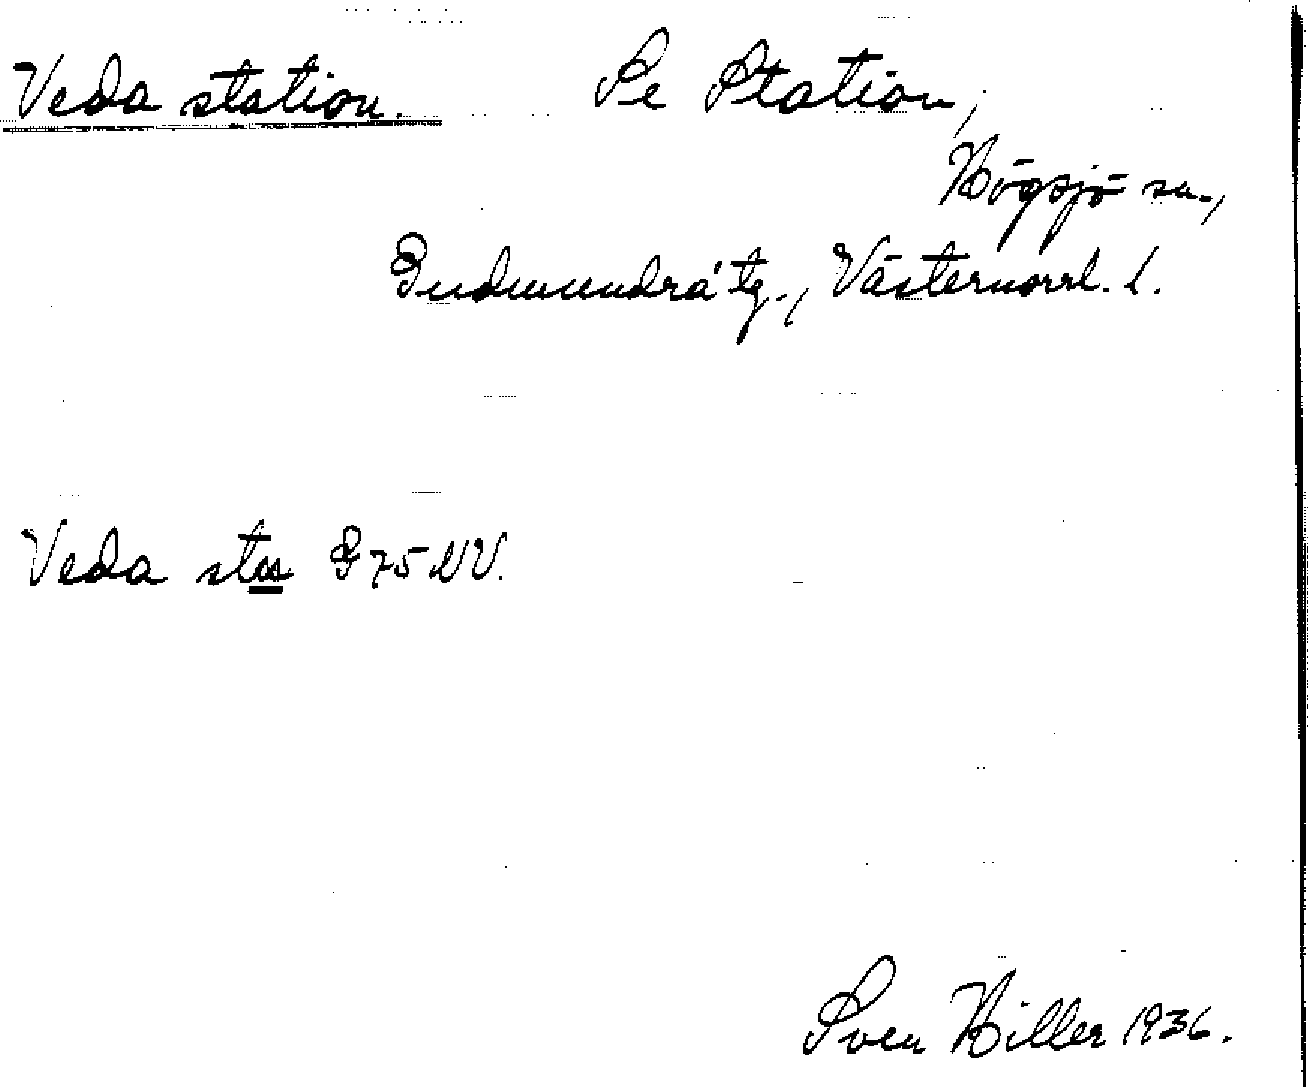 Veda station. Se Station,
Högsjö sn.,
Gudmundrå tg., Västernorrl. l.
Veda stn G 75 NV.
Sven Hiller 1936.